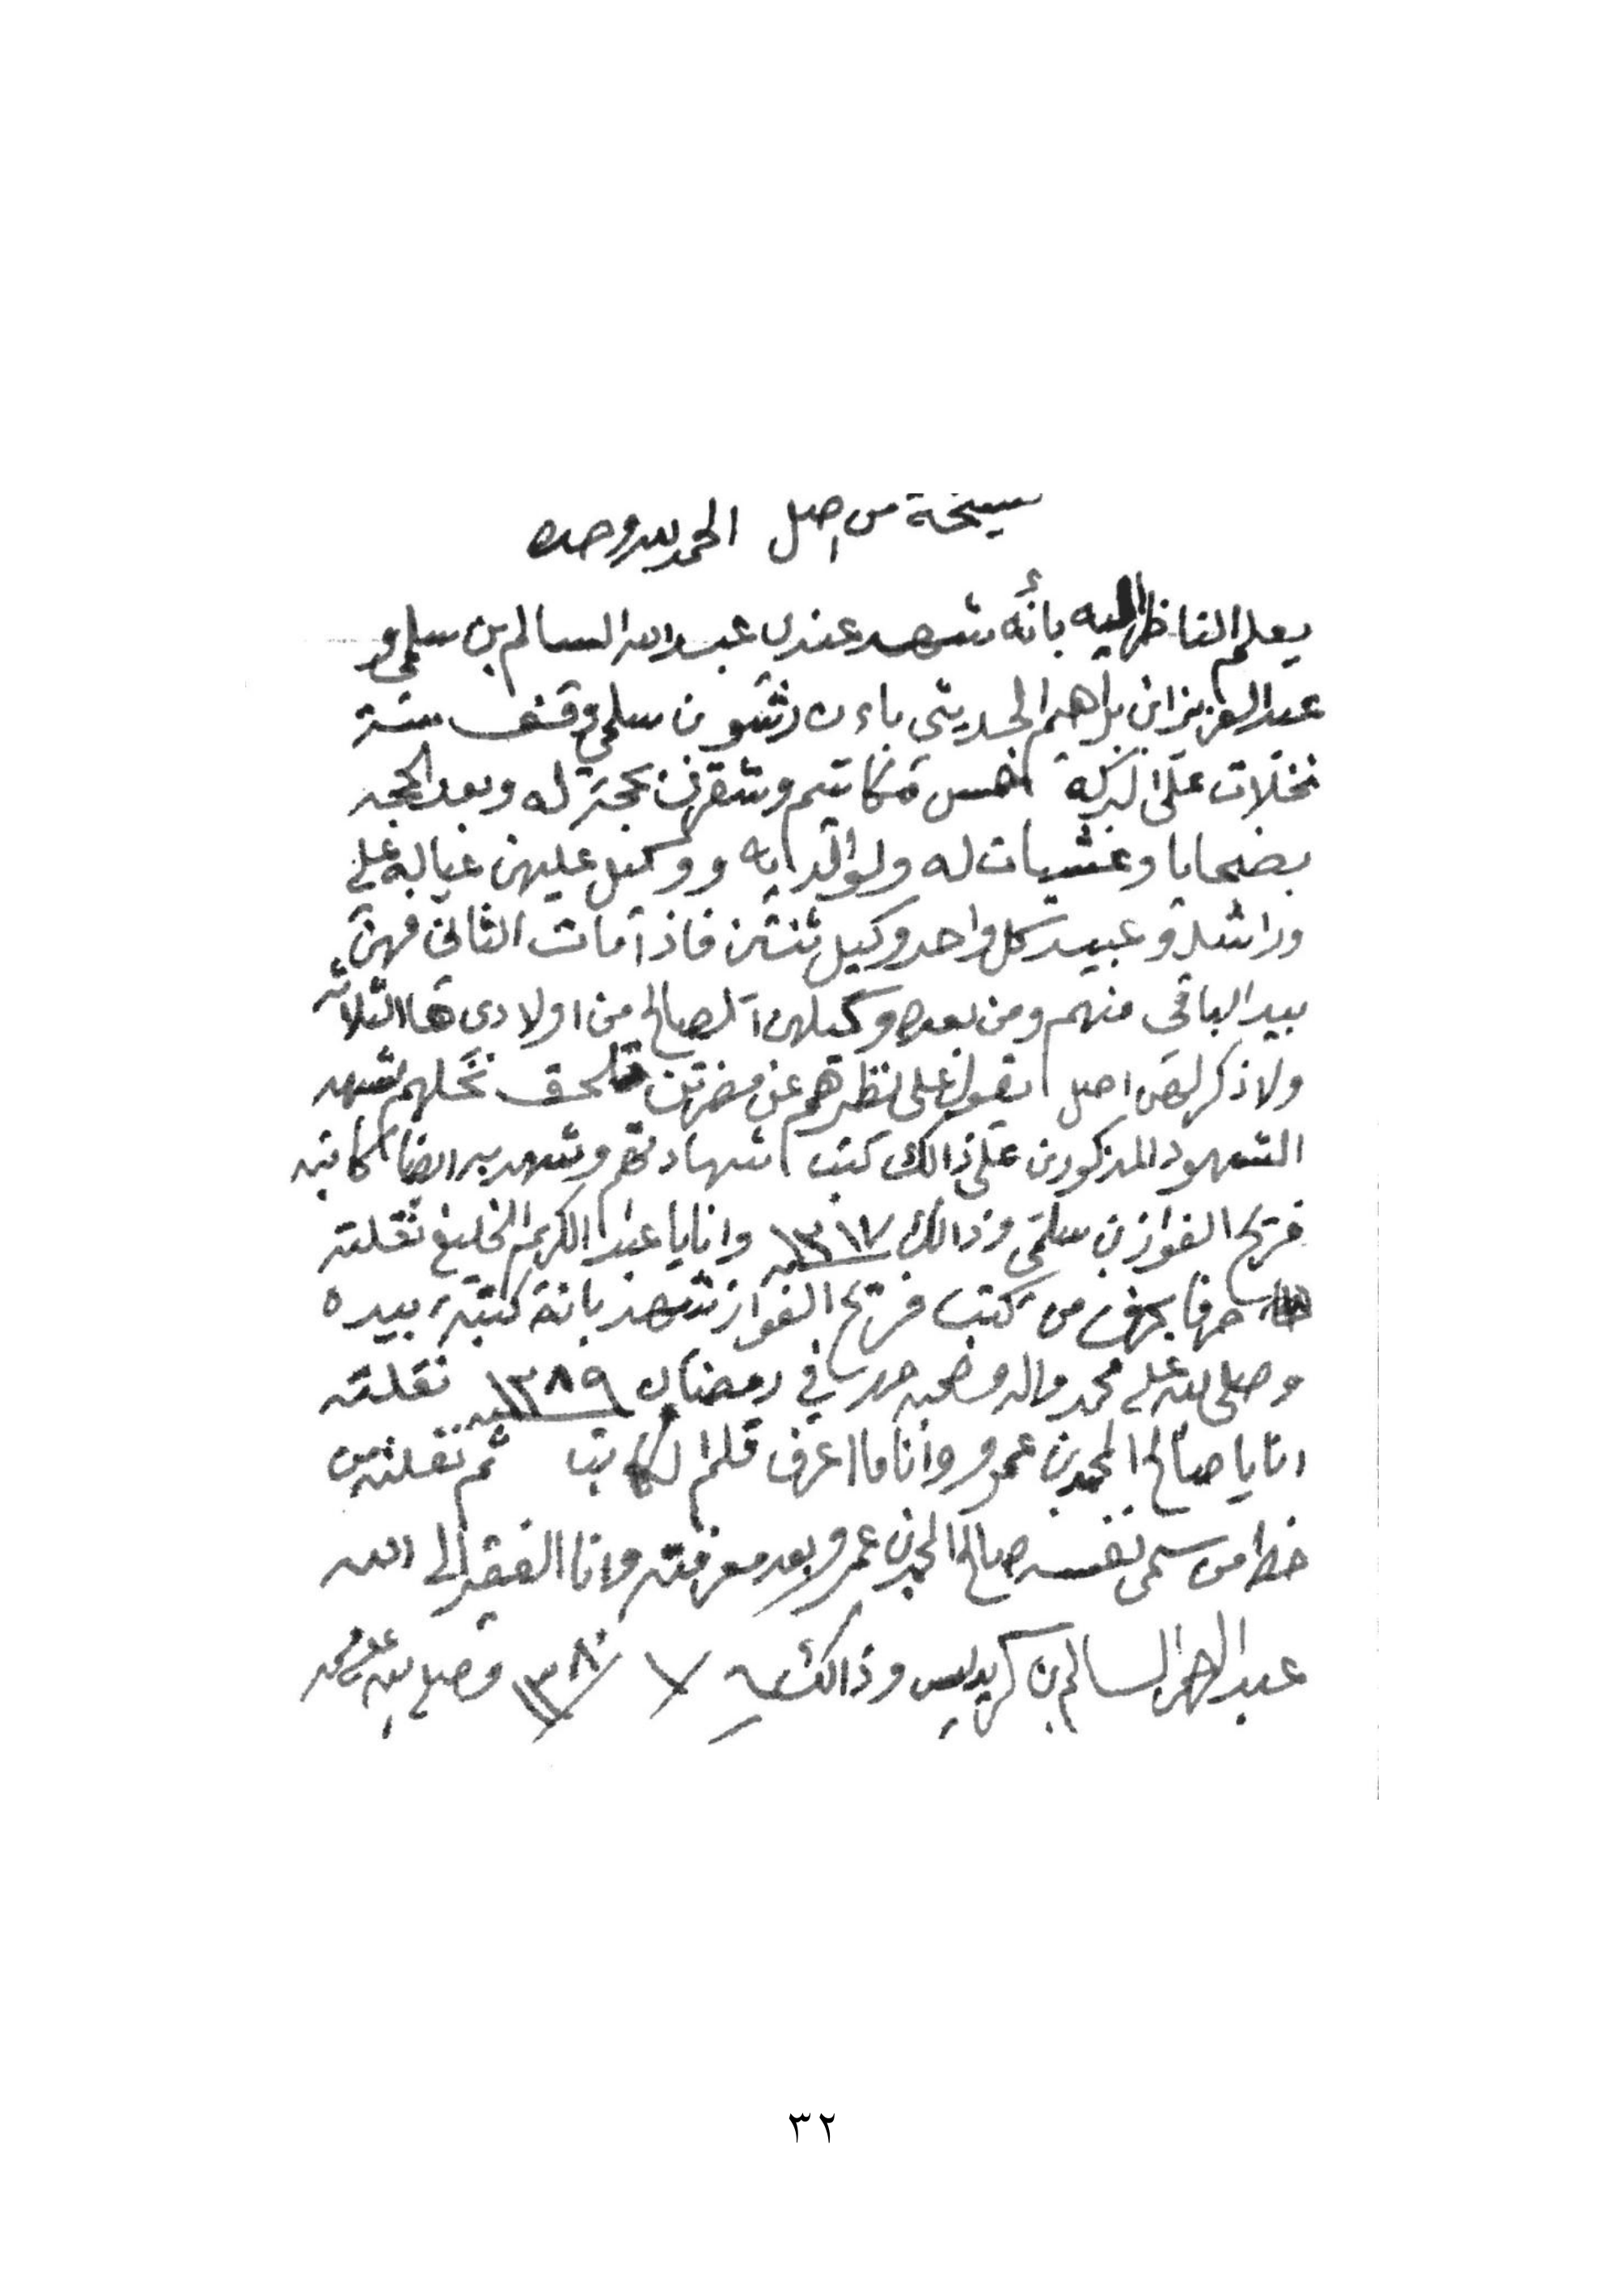 نسخة من اصل الحمد لله وحده
يعلم الناظر اليه بأنه شهد عندي عبدالله السالم بن سلمي و
عبد العزيز ابن براهيم الجديثي باءن بن سلمي وقف ستة
نخلات على البركة خمس مكاتيم وشقرى بحجة له وبعد الحجه
بضحايا وعشيات له ولوالدايه ووكيل عليهن عياله علي
وراشد وعبيد كل واحد وكيل ثنتين فاذا مات الثاني فهن
بيد الباقي منهم ومن بعده وكيلهن الصالح من اولادى هاالثلاثه
ولا ذكر لهن اصل يقول على نظرهم عن مضرتن تلحق نخلهم شهد
الشهود المذكورين على ذالك كتب شهادتهم وشهد به ايضا كاتبه
فريح الفواز بن سلمي وذالك ١٣١٧ وانايا عبد الكريم الخليفة نقلته
حرفا بحرف من كتب فريح الفواز نشهد بانه كتبه بيده
وصلى الله على محمد واله وصحبه حرر في رمضان ١٣٨٩ نقلته
انايا صالح المحمد بن عمرو وانا اعرف قلم الكاتب ثم نقلته من
خط من سمى نفسه صالح المحمد بن عمرو بعد معرفته وانا الفقير الى الله
عبد الرحمن السالم بن كريديس وذالك ٧ وصلى الله على محمد
٣٢